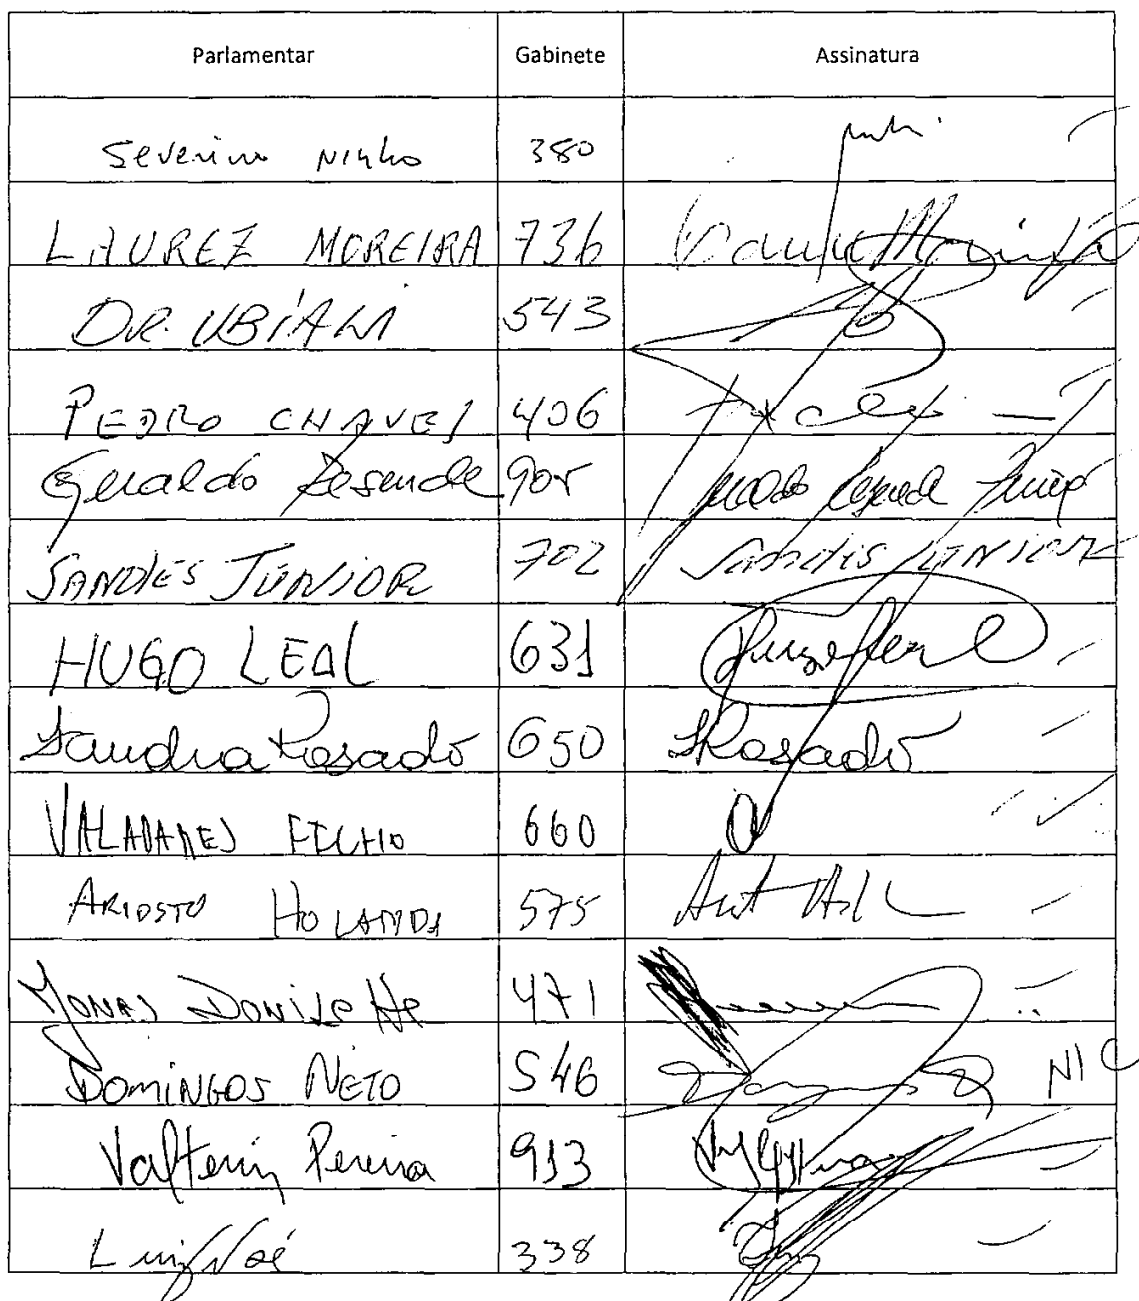 Parlamentar Gabinete Assinatura
Severino Ninho 380
LAUREZ MOREIRA 736
DR. UBIALI 543
PEDRO CHAVES 406
Geraldo Resende 905 Geraldo Resende
SANDES JÚNIOR 702 SANDES JUNIOR
HUGO LEAL 631 Hugo Leal
Sandra Rosado 650 SRosado
VALADARES FILHO 660
ARIOSTO HOLANDA 575
JONAS DONIZETTE 471
DOMINGOS NETO 546
Valtenir Pereira 913
Luiz Noé 338